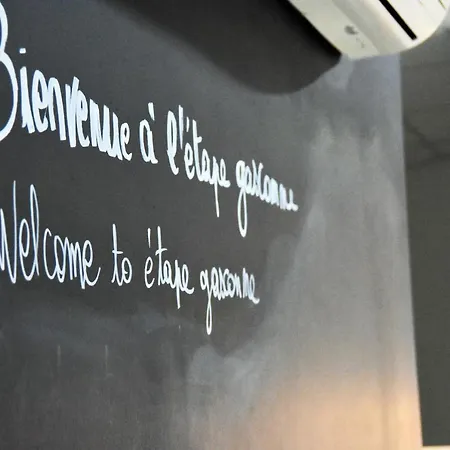 Bienvenue à l'étape gasconne
Welcome to étape gasconne